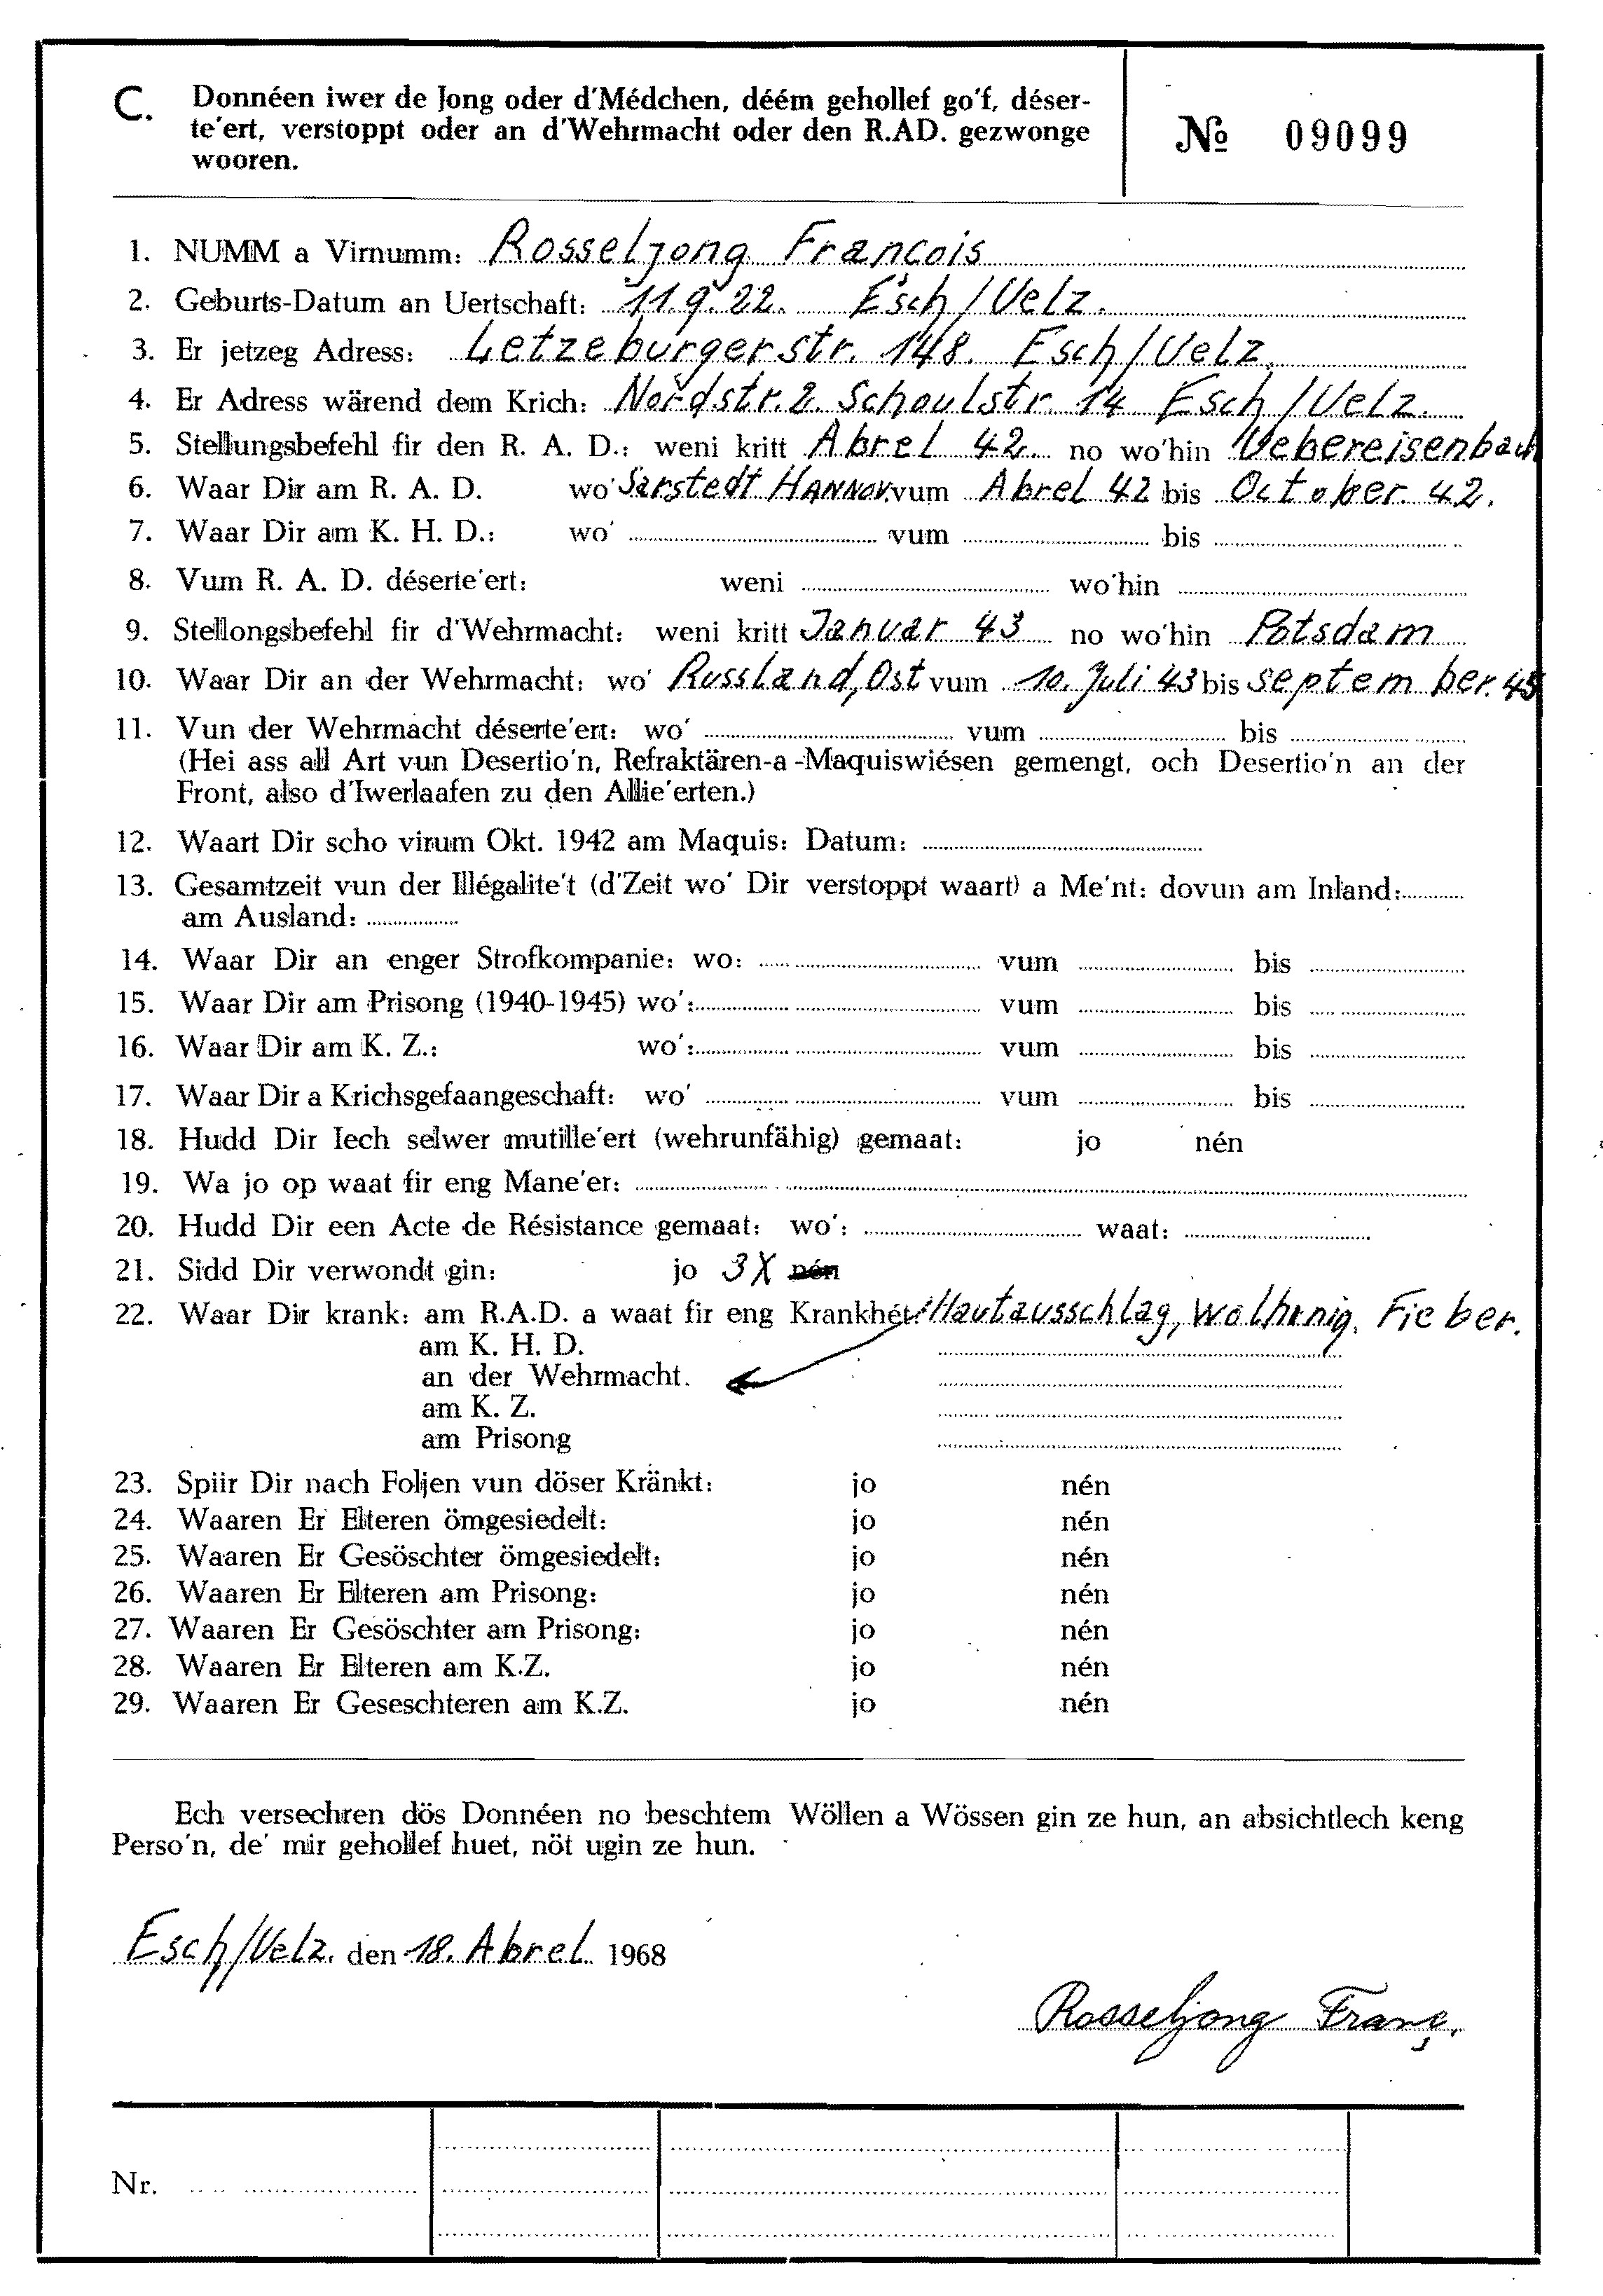 C. Donnéen iwer de Jong oder d'Médchen, déém gehollef go'f, déser-
te'ert, verstoppt oder an d'Wehrmacht oder den R.AD. gezwonge
wooren.
№ 09099
1. NUMM a Virnumm: Rosseljong Francois
2. Geburts-Datum an Uertschaft: 11.9.22. Esch/Uelz.
3. Er jetzeg Adress: Letzeburgerstr. 148. Esch/Uelz.
4. Er Adress wärend dem Krich: Nordstr. 2. Schoulstr 14 Esch/Uelz.
5. Stellungsbefehl fir den R. A. D.: weni kritt Abrel 42. no wo'hin Uebereisenbach
6. Waar Dir am R. A. D. wo' Sarstedt HANNOV. vum Abrel 42 bis October. 42.
7. Waar Dir am K. H. D.: wo' vum bis
8. Vum R. A. D. déserte'ert: weni wo'hin
9. Stellongsbefehl fir d'Wehrmacht: weni kritt Januar 43 no wo'hin Potsdam
10. Waar Dir an der Wehrmacht: wo' Russland, Ost vum 10. Juli 43 bis September. 45
11. Vun der Wehrmacht déserte'ert: wo' vum bis
(Hei ass all Art vun Desertio'n, Refraktären-a -Maquiswiésen gemengt, och Desertio'n an der
Front, also d'Iwerlaafen zu den Allie'erten.)
12. Waart Dir scho virum Okt. 1942 am Maquis: Datum:
13. Gesamtzeit vun der Illégalite't (d'Zeit wo' Dir verstoppt waart) a Me'nt: dovun am Inland:
am Ausland:
14. Waar Dir an enger Strofkompanie: wo: vum bis
15. Waar Dir am Prisong (1940-1945) wo': vum bis
16. Waar Dir am K. Z.: wo': vum bis
17. Waar Dir a Krichsgefaangeschaft: wo' vum bis
18. Hudd Dir Iech selwer mutille'ert (wehrunfähig) gemaat: jo nén
19. Wa jo op waat fir eng Mane'er:
20. Hudd Dir een Acte de Résistance gemaat: wo': waat:
21. Sidd Dir verwondt gin: jo 3X nén
22. Waar Dir krank: am R.A.D. a waat fir eng Krankhét: Hautausschlag, Wolhinig. Fieber.
am K. H. D.
an der Wehrmacht.
am K. Z.
am Prisong
23. Spiir Dir nach Foljen vun döser Kränkt: jo nén
24. Waaren Er Elteren ömgesiedelt: jo nén
25. Waaren Er Gesöschter ömgesiedelt: jo nén
26. Waaren Er Elteren am Prisong: jo nén
27. Waaren Er Gesöschter am Prisong: jo nén
28. Waaren Er Elteren am K.Z. jo nén
29. Waaren Er Geseschteren am K.Z. jo nén
Ech versechren dös Donnéen no beschtem Wöllen a Wössen gin ze hun, an absichtlech keng
Perso'n, de' mir gehollef huet, nöt ugin ze hun.
Esch/Uelz. den 18. Abrel 1968
Rosseljong Franç.
Nr.